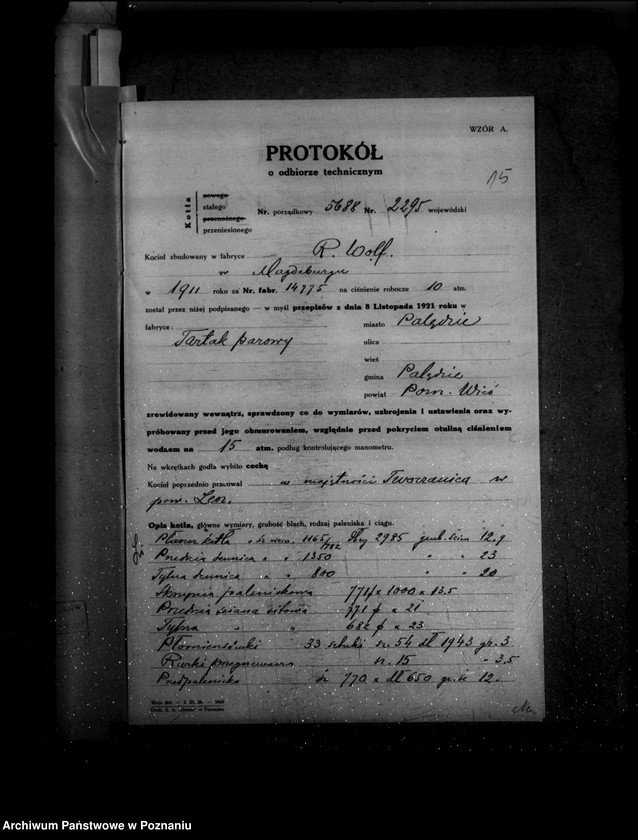 WZÓR A.
PROTOKÓŁ
o odbiorze technicznym
15
Kotła
nowego
stałego
przenośnego
przeniesionego
Nr. porządkowy 5688 Nr. 2295 wojewódzki
Kocioł zbudowany w fabryce R. Wolf.
w Magdeburgu
w 1911 roku za Nr. fabr. 14775 na ciśnienie robocze 10 atm.
został przez niżej podpisanego — w myśl przepisów z dnia 8 Listopada 1921 roku w
fabryce: miasto Palędzie
Tartak parowy
ulica
wieś
gmina Palędzie
powiat Pozn. Wieś
zrewidowany wewnątrz, sprawdzony co do wymiarów, uzbrojenia i ustawienia oraz wy-
próbowany przed jego obmurowaniem, względnie przed pokryciem otuliną ciśnieniem
wodnem na 15 atm. podług kontrolującego manometru.
Na wkrętkach godła wybito cechę
Kocioł poprzednio pracował w majętności Tworzanica w
pow. Lesz.
Opis kotła, główne wymiary, grubość blach, rodzaj paleniska i ciągu.
Płaszcz kotła śr. wewn. 1165/782 dłg 2985 grub. ścian 12.9
Przednia dennica " " 1350 " " 23
Tylna dennica " " 800 " " 20
Skrzynia paleniskowa 771 x 1000 x 13.5
Przednia ściana sitowa 771 ϕ x 21
Tylna " " 682 ϕ x 23
Płomieniówki 33 sztuki śr. 54 dł 1943 gr. 3
Rurki przegrzewacza śr. 15 " 3,5
Przedpalenisko śr 770 x dł 650 gr. śc 12.